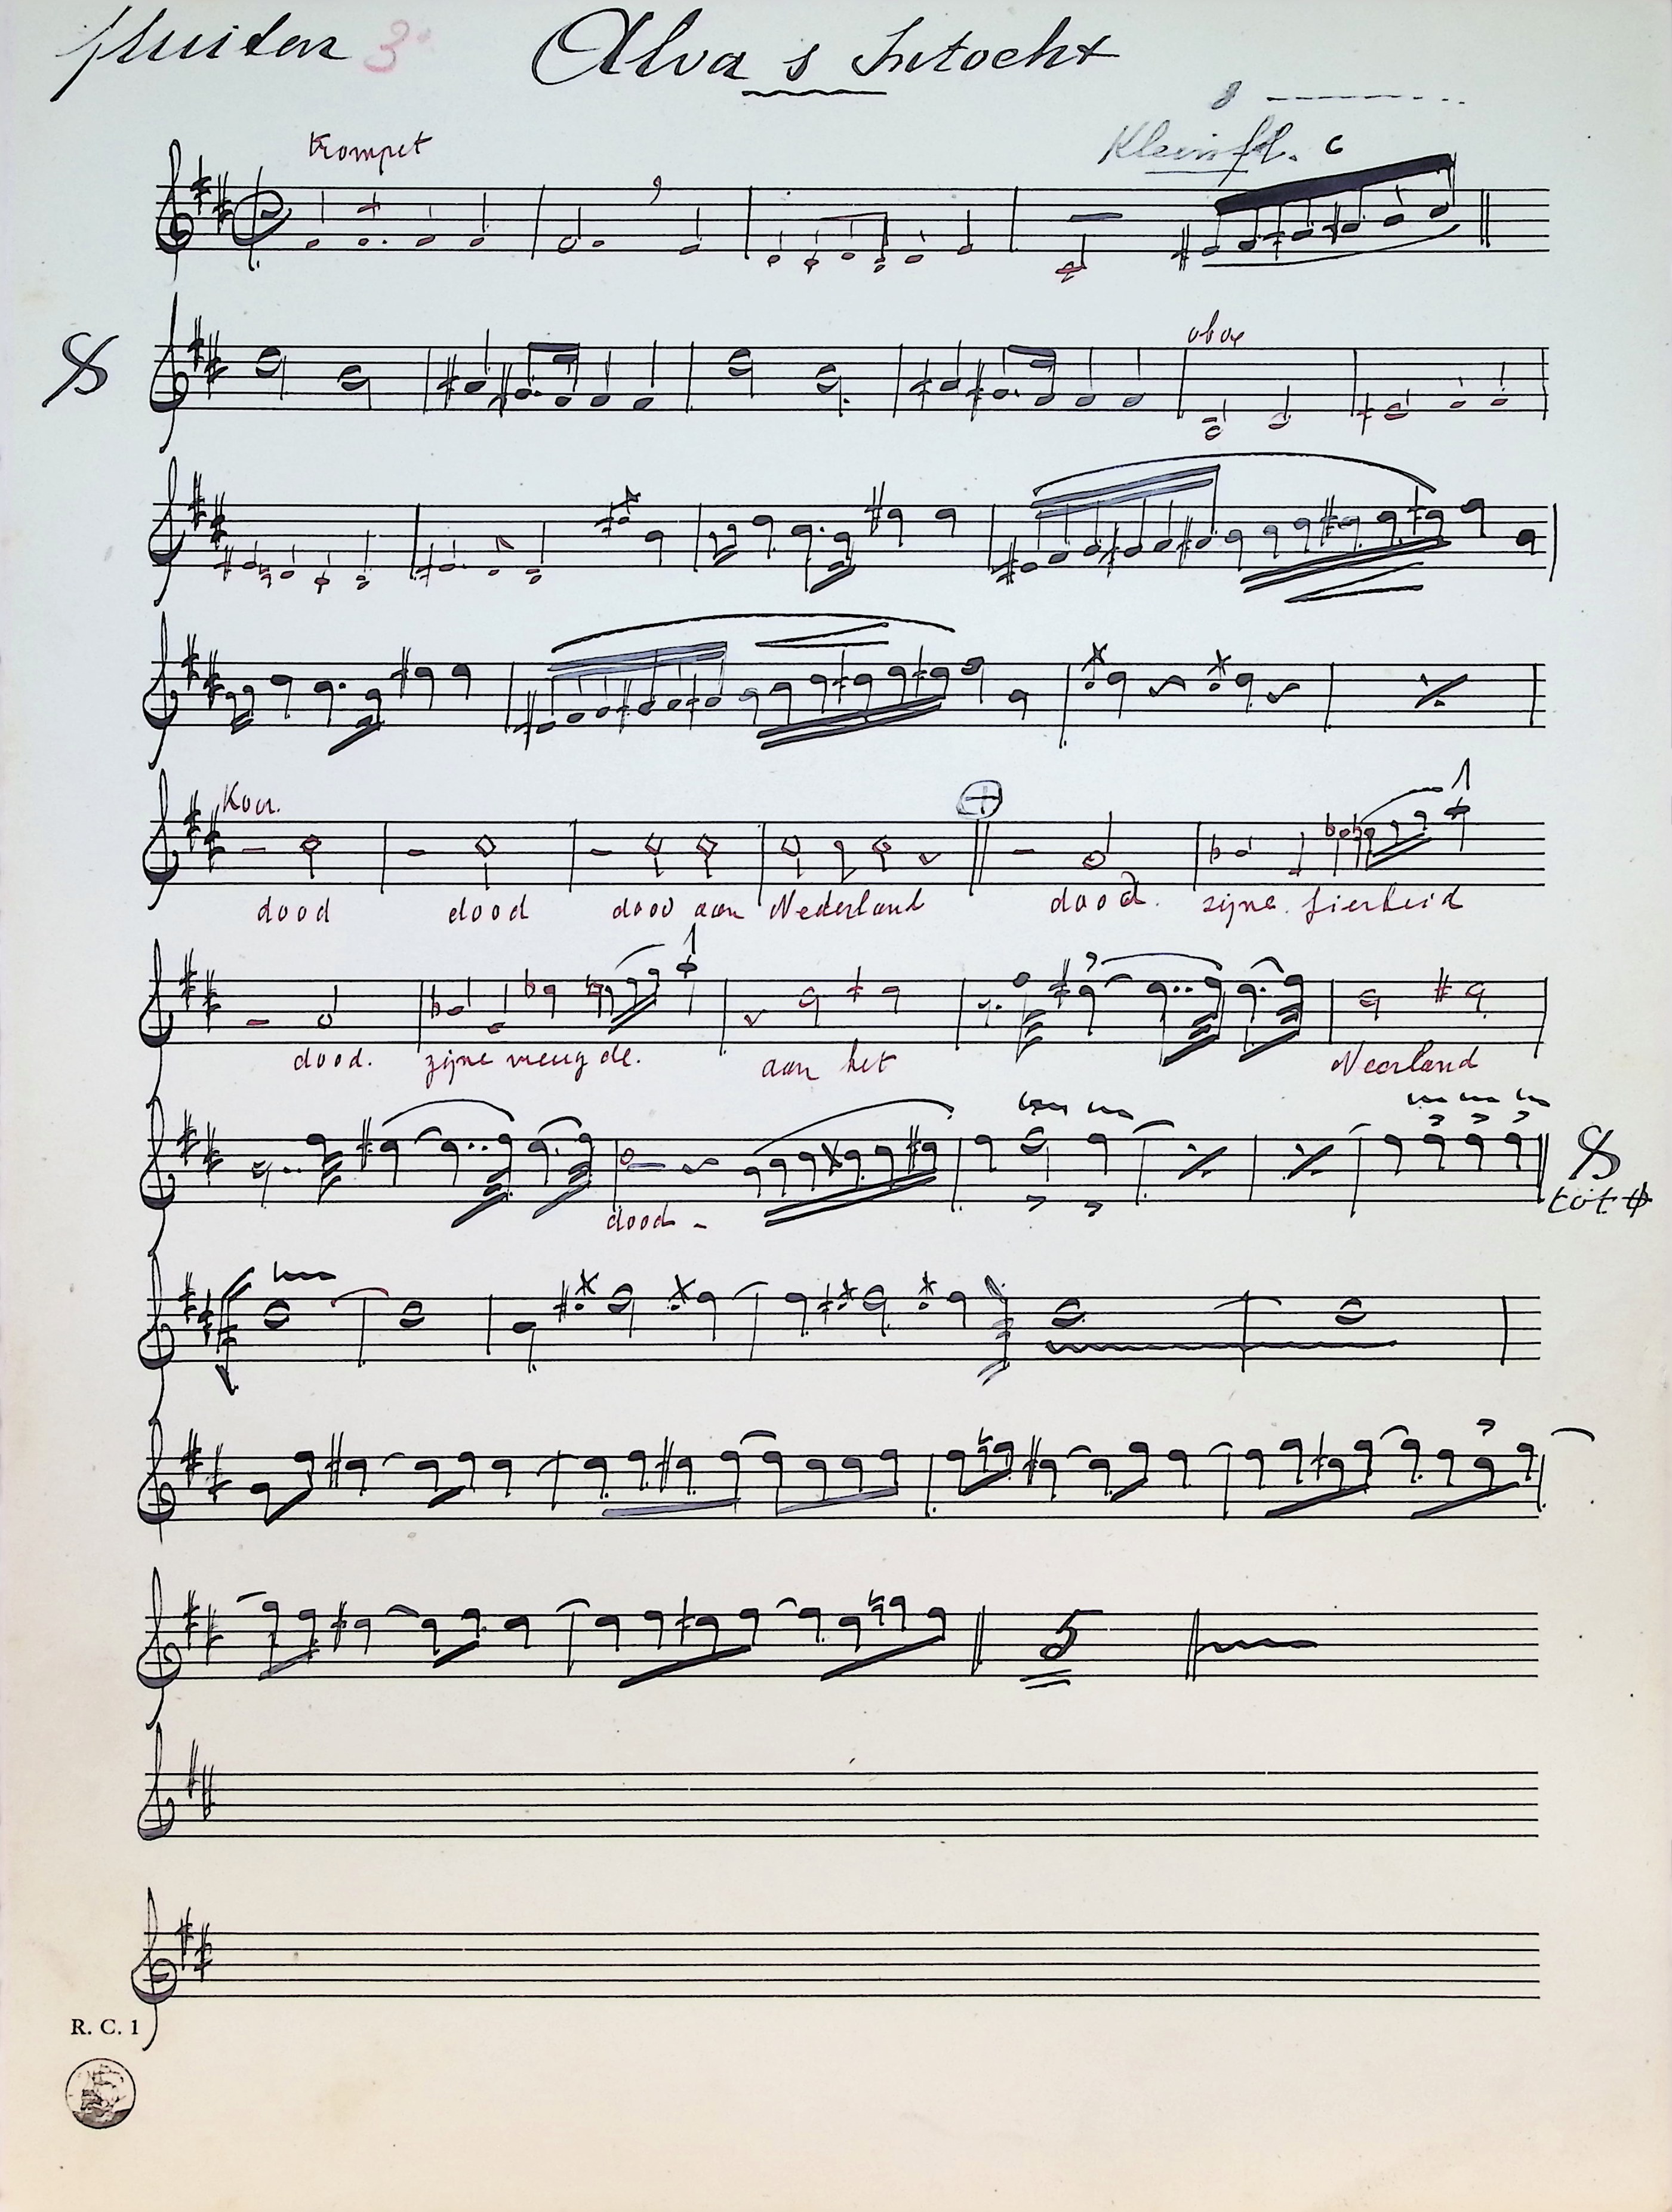 fluiten 3
Alva s Intocht
8
Trompet
Kleinfl. c
oboe
Koor.
1
dood dood dood aan Nederland dood. zijne fierheid
1
dood. zijne vreugde. aan het Neerland
dood -
tot
5
R. C. 1